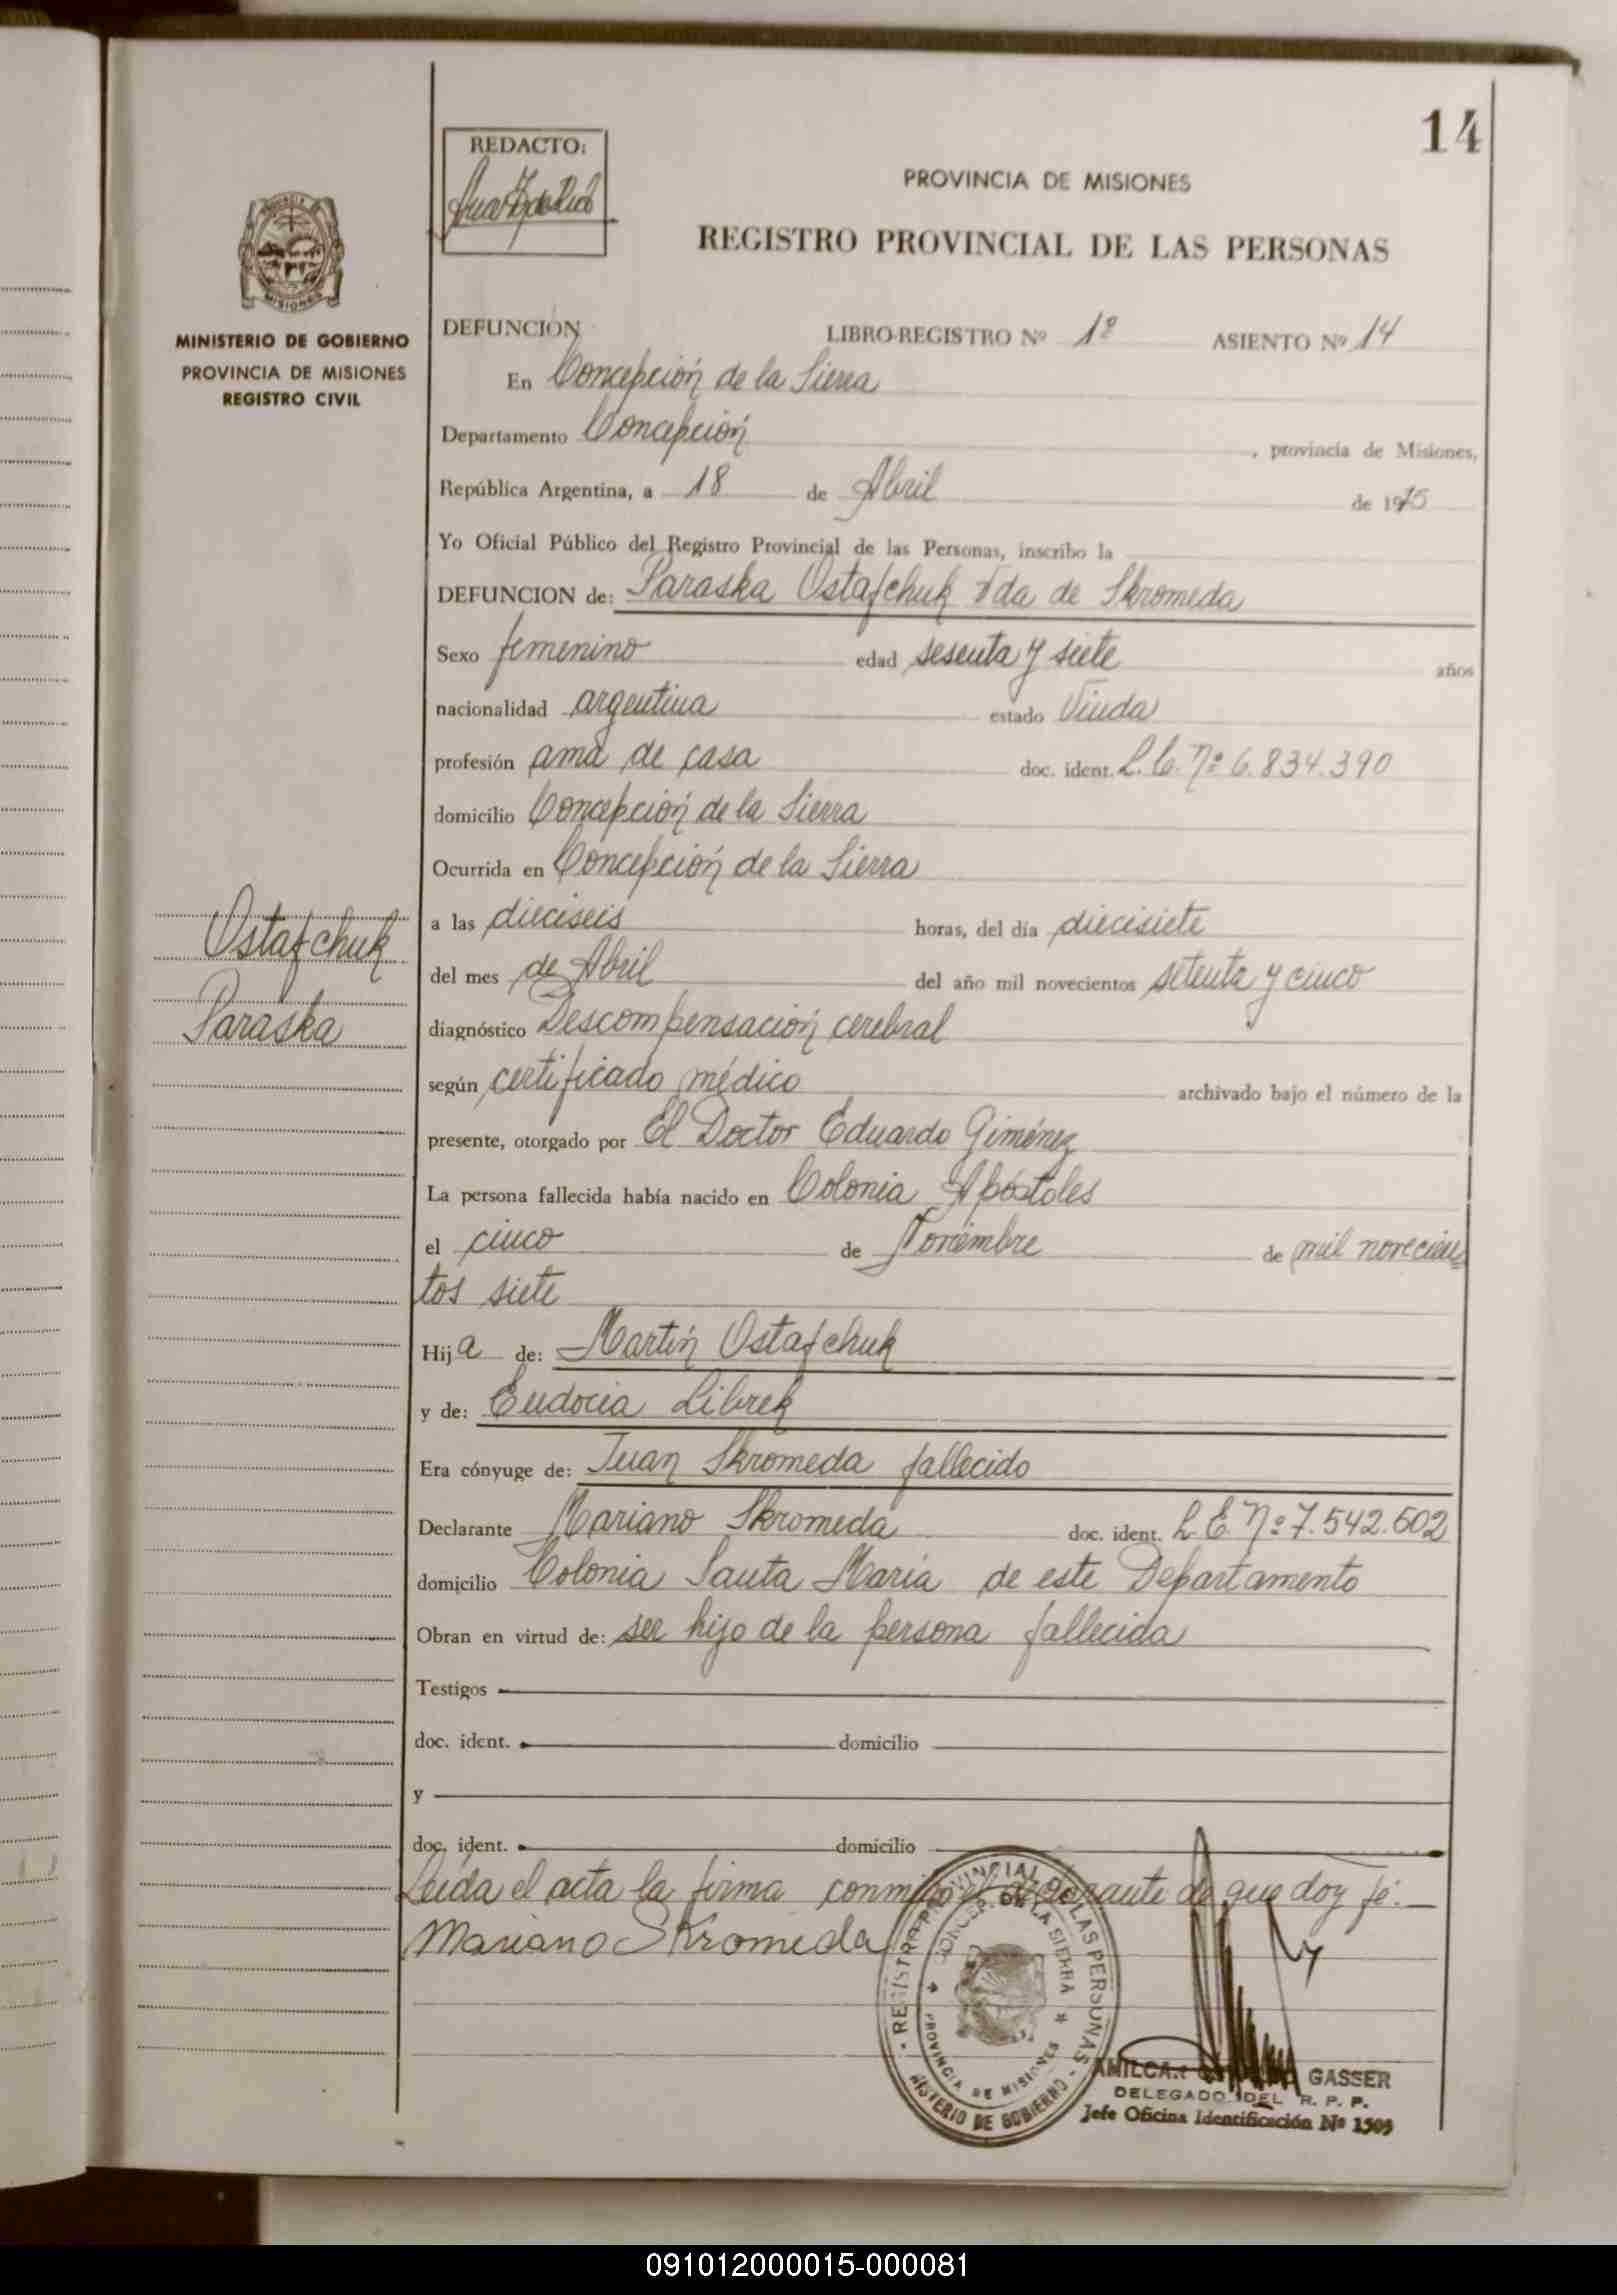 14
REDACTO:
PROVINCIA DE MISIONES
REGISTRO PROVINCIAL DE LAS PERSONAS
MISIONES
MINISTERIO DE GOBIERNO
PROVINCIA DE MISIONES
REGISTRO CIVIL
DEFUNCION LIBRO-REGISTRO Nº 1º ASIENTO Nº 14
En Concepción de la Sierra
Departamento Concepción, provincia de Misiones,
República Argentina, a 18 de Abril de 1975
Yo Oficial Público del Registro Provincial de las Personas, inscribo la
DEFUNCION de: Paraska Ostafchuk Vda de Skromeda
Sexo femenino edad sesenta y siete años
nacionalidad argentina estado Viuda
profesión ama de casa doc. ident. L.C. Nº 6.834.390
domicilio Concepción de la Sierra
Ocurrida en Concepción de la Sierra
a las dieciseis horas, del día diecisiete
del mes de Abril del año mil novecientos setenta y cinco
diagnóstico Descompensación cerebral
según certificado médico archivado bajo el número de la
presente, otorgado por El Doctor Eduardo Giménez
La persona fallecida había nacido en Colonia Apóstoles
el cinco de Noviembre de mil novecien=
tos siete
Hija de: Martín Ostafchuk
y de: Eudocia Librek
Era cónyuge de: Juan Skromeda fallecido
Declarante Mariano Skromeda doc. ident. L.E. Nº 7.542.602
domicilio Colonia Santa María de este Departamento
Obran en virtud de: ser hijo de la persona fallecida
Testigos
doc. ident. domicilio
y
doc. ident. domicilio
Leída el acta la firma conmigo el declarante de que doy fé.
Mariano Skromeda
Ostafchuk
Paraska
REGISTRO PROVINCIAL DE LAS PERSONAS
CONCEP. DE LA SIERRA
PROVINCIA DE MISIONES
MINISTERIO DE GOBIERNO
AMILCAR GASSER
DELEGADO DEL R. P. P.
Jefe Oficina Identificación Nº 1505
091012000015-000081